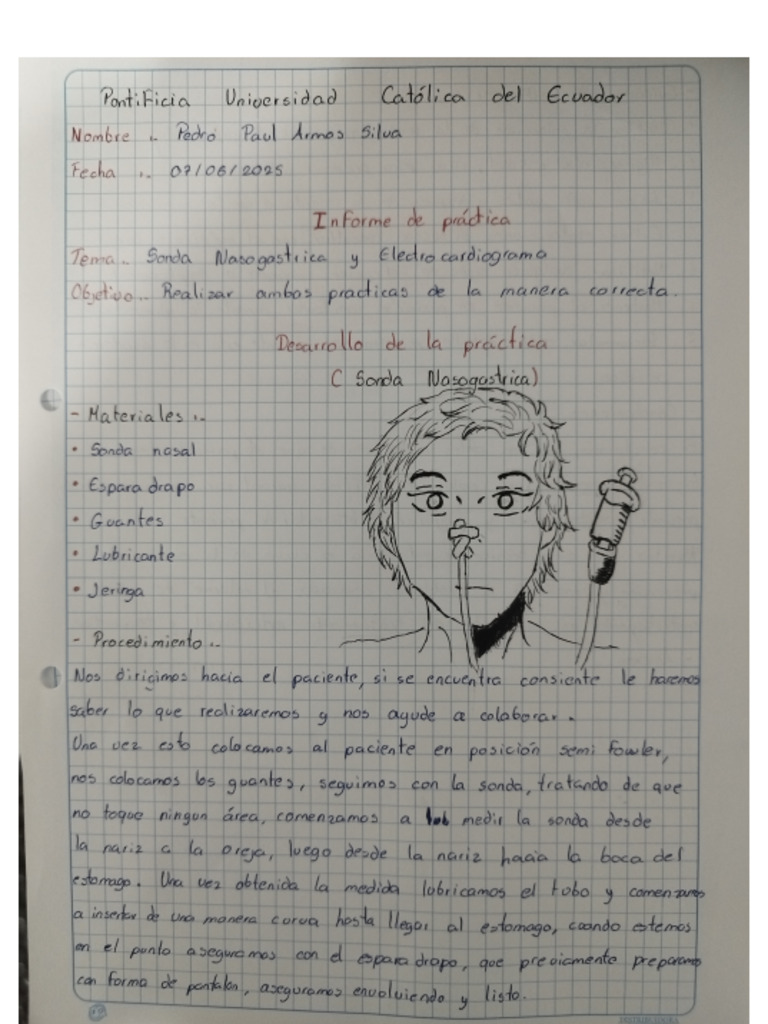 Pontificia Universidad Católica del Ecuador
Nombre .. Pedro Paul Armos Silva
Fecha .. 07/06/2025
Informe de práctica
Tema.. Sonda Nasogastrica y Electrocardiograma
Objetivo.. Realizar ambas practicas de la manera correcta.
Desarrollo de la práctica
( Sonda Nasogastrica)
- Materiales ..
• Sonda nasal
• Esparadrapo
• Guantes
• Lubricante
• Jeringa
- Procedimiento ..
Nos dirigimos hacia el paciente, si se encuentra consiente le haremos
saber lo que realizaremos y nos ayude a colaborar.
Una vez esto colocamos al paciente en posición semi fowler,
nos colocamos los guantes, seguimos con la sonda, tratando de que
no toque ningun área, comenzamos a medir la sonda desde
la nariz a la oreja, luego desde la nariz hacia la boca del
estomago. Una vez obtenida la medida lubricamos el tubo y comenzamos
a insertar de una manera curva hasta llegar al estomago, cuando estemos
en el punto aseguramos con el esparadrapo, que previamente preparamos
con forma de pantalon, aseguramos envolviendo y listo.